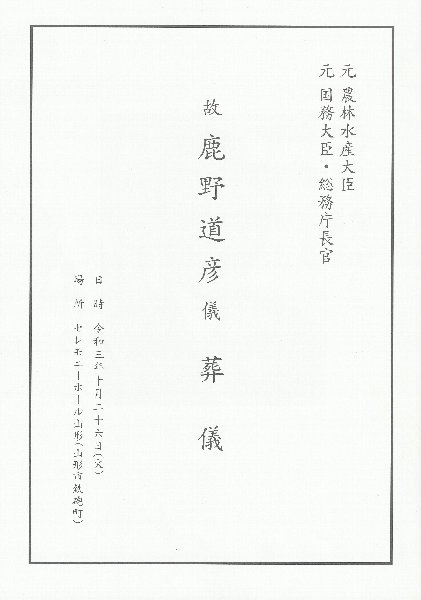 元 農林水産大臣
元 国務大臣・総務庁長官
故 鹿野道彦儀 葬儀
日時 令和三年十月二十六日(火)
場所 セレモニーホール山形(山形市鉄砲町)